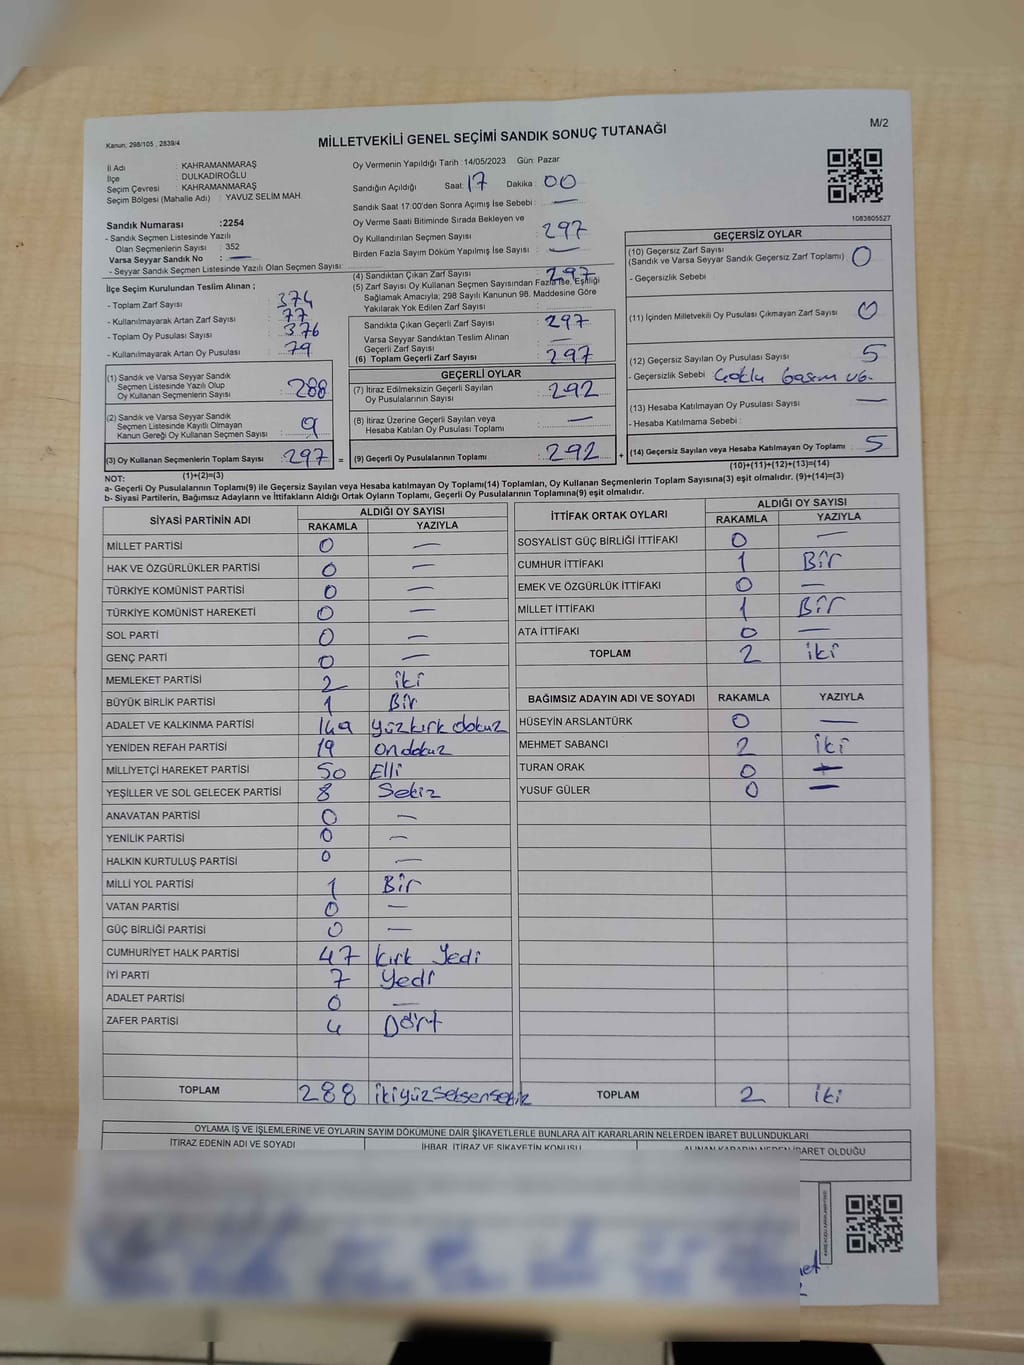 Kanun; 298/105 , 2839/4
MİLLETVEKİLİ GENEL SEÇİMİ SANDIK SONUÇ TUTANAĞI
M/2
İl Adı : KAHRAMANMARAŞ
İlçe : DULKADİROĞLU
Seçim Çevresi : KAHRAMANMARAŞ
Seçim Bölgesi (Mahalle Adı) : YAVUZ SELİM MAH.
Sandık Numarası :2254
- Sandık Seçmen Listesinde Yazılı
Olan Seçmenlerin Sayısı : 352
Varsa Seyyar Sandık No : —
- Seyyar Sandık Seçmen Listesinde Yazılı Olan Seçmen Sayısı:
Oy Vermenin Yapıldığı Tarih :14/05/2023 Gün: Pazar
Sandığın Açıldığı Saat: 17 Dakika : 00
Sandık Saat 17:00'den Sonra Açımış İse Sebebi : —
Oy Verme Saati Bitiminde Sırada Bekleyen ve
Oy Kullandırılan Seçmen Sayısı : 297
Birden Fazla Sayım Döküm Yapılmış İse Sayısı : —
1083605527
İlçe Seçim Kurulundan Teslim Alınan ;
- Toplam Zarf Sayısı : 374
- Kullanılmayarak Artan Zarf Sayısı : 77
- Toplam Oy Pusulası Sayısı : 376
- Kullanılmayarak Artan Oy Pusulası : 79
(1) Sandık ve Varsa Seyyar Sandık
Seçmen Listesinde Yazılı Olup
Oy Kullanan Seçmenlerin Sayısı : 288
(2) Sandık ve Varsa Seyyar Sandık
Seçmen Listesinde Kayıtlı Olmayan
Kanun Gereği Oy Kullanan Seçmen Sayısı : 9
(3) Oy Kullanan Seçmenlerin Toplam Sayısı : 297 =
(1)+(2)=(3)
(4) Sandıktan Çıkan Zarf Sayısı : 297
(5) Zarf Sayısı Oy Kullanan Seçmen Sayısından Fazla İse, Eşitliği
Sağlamak Amacıyla; 298 Sayılı Kanunun 98. Maddesine Göre
Yakılarak Yok Edilen Zarf Sayısı :
Sandıkta Çıkan Geçerli Zarf Sayısı : 297
Varsa Seyyar Sandıktan Teslim Alınan
Geçerli Zarf Sayısı : —
(6) Toplam Geçerli Zarf Sayısı : 297
GEÇERLİ OYLAR
(7) İtiraz Edilmeksizin Geçerli Sayılan
Oy Pusulalarının Sayısı : 292
(8) İtiraz Üzerine Geçerli Sayılan veya
Hesaba Katılan Oy Pusulası Toplamı : —
(9) Geçerli Oy Pusulalarının Toplamı : 292 +
GEÇERSİZ OYLAR
(10) Geçersiz Zarf Sayısı
(Sandık ve Varsa Seyyar Sandık Geçersiz Zarf Toplamı) : 0
- Geçersizlik Sebebi :
(11) İçinden Milletvekili Oy Pusulası Çıkmayan Zarf Sayısı : 0
(12) Geçersiz Sayılan Oy Pusulası Sayısı : 5
- Geçersizlik Sebebi : Çoklu basım vb.
(13) Hesaba Katılmayan Oy Pusulası Sayısı : —
- Hesaba Katılmama Sebebi :
(14) Geçersiz Sayılan veya Hesaba Katılmayan Oy Toplamı : 5
(10)+(11)+(12)+(13)=(14)
NOT:
a- Geçerli Oy Pusulaları Toplamı(9) ile Geçersiz Sayılan veya Hesaba katılmayan Oy Toplamı(14) Toplamları, Oy Kullanan Seçmenlerin Toplam Sayısına(3) eşit olmalıdır. (9)+(14)=(3)
b- Siyasi Partilerin, Bağımsız Adayların ve İttifakların Aldığı Ortak Oyların Toplamı, Geçerli Oy Pusulalarının Toplamına(9) eşit olmalıdır.
SİYASİ PARTİNİN ADI ALDIĞI OY SAYISI
RAKAMLA YAZIYLA
MİLLET PARTİSİ 0 —
HAK VE ÖZGÜRLÜKLER PARTİSİ 0 —
TÜRKİYE KOMÜNİST PARTİSİ 0 —
TÜRKİYE KOMÜNİST HAREKETİ 0 —
SOL PARTİ 0 —
GENÇ PARTİ 0 —
MEMLEKET PARTİSİ 2 iki
BÜYÜK BİRLİK PARTİSİ 1 Bir
ADALET VE KALKINMA PARTİSİ 149 yüzkırk dokuz
YENİDEN REFAH PARTİSİ 19 ondokuz
MİLLİYETÇİ HAREKET PARTİSİ 50 Elli
YEŞİLLER VE SOL GELECEK PARTİSİ 8 Sekiz
ANAVATAN PARTİSİ 0 —
YENİLİK PARTİSİ 0 —
HALKIN KURTULUŞ PARTİSİ 0 —
MİLLİ YOL PARTİSİ 1 Bir
VATAN PARTİSİ 0 —
GÜÇ BİRLİĞİ PARTİSİ 0 —
CUMHURİYET HALK PARTİSİ 47 kırk Yedi
İYİ PARTİ 7 Yedi
ADALET PARTİSİ 0 —
ZAFER PARTİSİ 4 Dört
TOPLAM 288 ikiyüzseksensekiz
İTTİFAK ORTAK OYLARI ALDIĞI OY SAYISI
RAKAMLA YAZIYLA
SOSYALİST GÜÇ BİRLİĞİ İTTİFAKI 0 —
CUMHUR İTTİFAKI 1 Bir
EMEK VE ÖZGÜRLÜK İTTİFAKI 0 —
MİLLET İTTİFAKI 1 Bir
ATA İTTİFAKI 0 —
TOPLAM 2 iki
BAĞIMSIZ ADAYIN ADI VE SOYADI RAKAMLA YAZIYLA
HÜSEYİN ARSLANTÜRK 0 —
MEHMET SABANCI 2 iki
TURAN ORAK 0 —
YUSUF GÜLER 0 —
TOPLAM 2 iki
OYLAMA İŞ VE İŞLEMLERİNE VE OYLARIN SAYIM DÖKÜMÜNE DAİR ŞİKAYETLERLE BUNLARA AİT KARARLARIN NELERDEN İBARET BULUNDUKLARI
İTİRAZ EDENİN ADI VE SOYADI İHBAR, İTİRAZ VE ŞİKAYETİN KONUSU ALINAN KARARIN NEDEN İBARET OLDUĞU